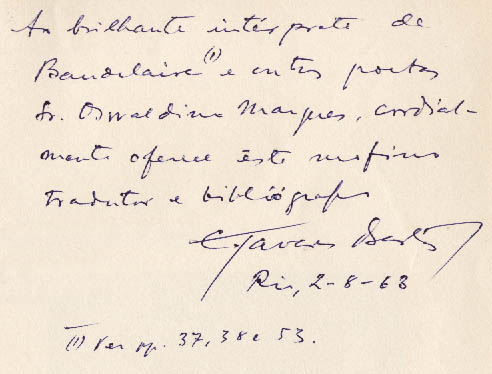 Ao brilhante intérprete de
Baudelaire (1) e outros poetas
Sr. Oswaldino Marques, cordial-
mente oferece êste mofino
tradutor e bibliógrafo
C. Tavares Bastos
Rio, 2-8-63
(1) Ver pp. 37, 38 e 53.